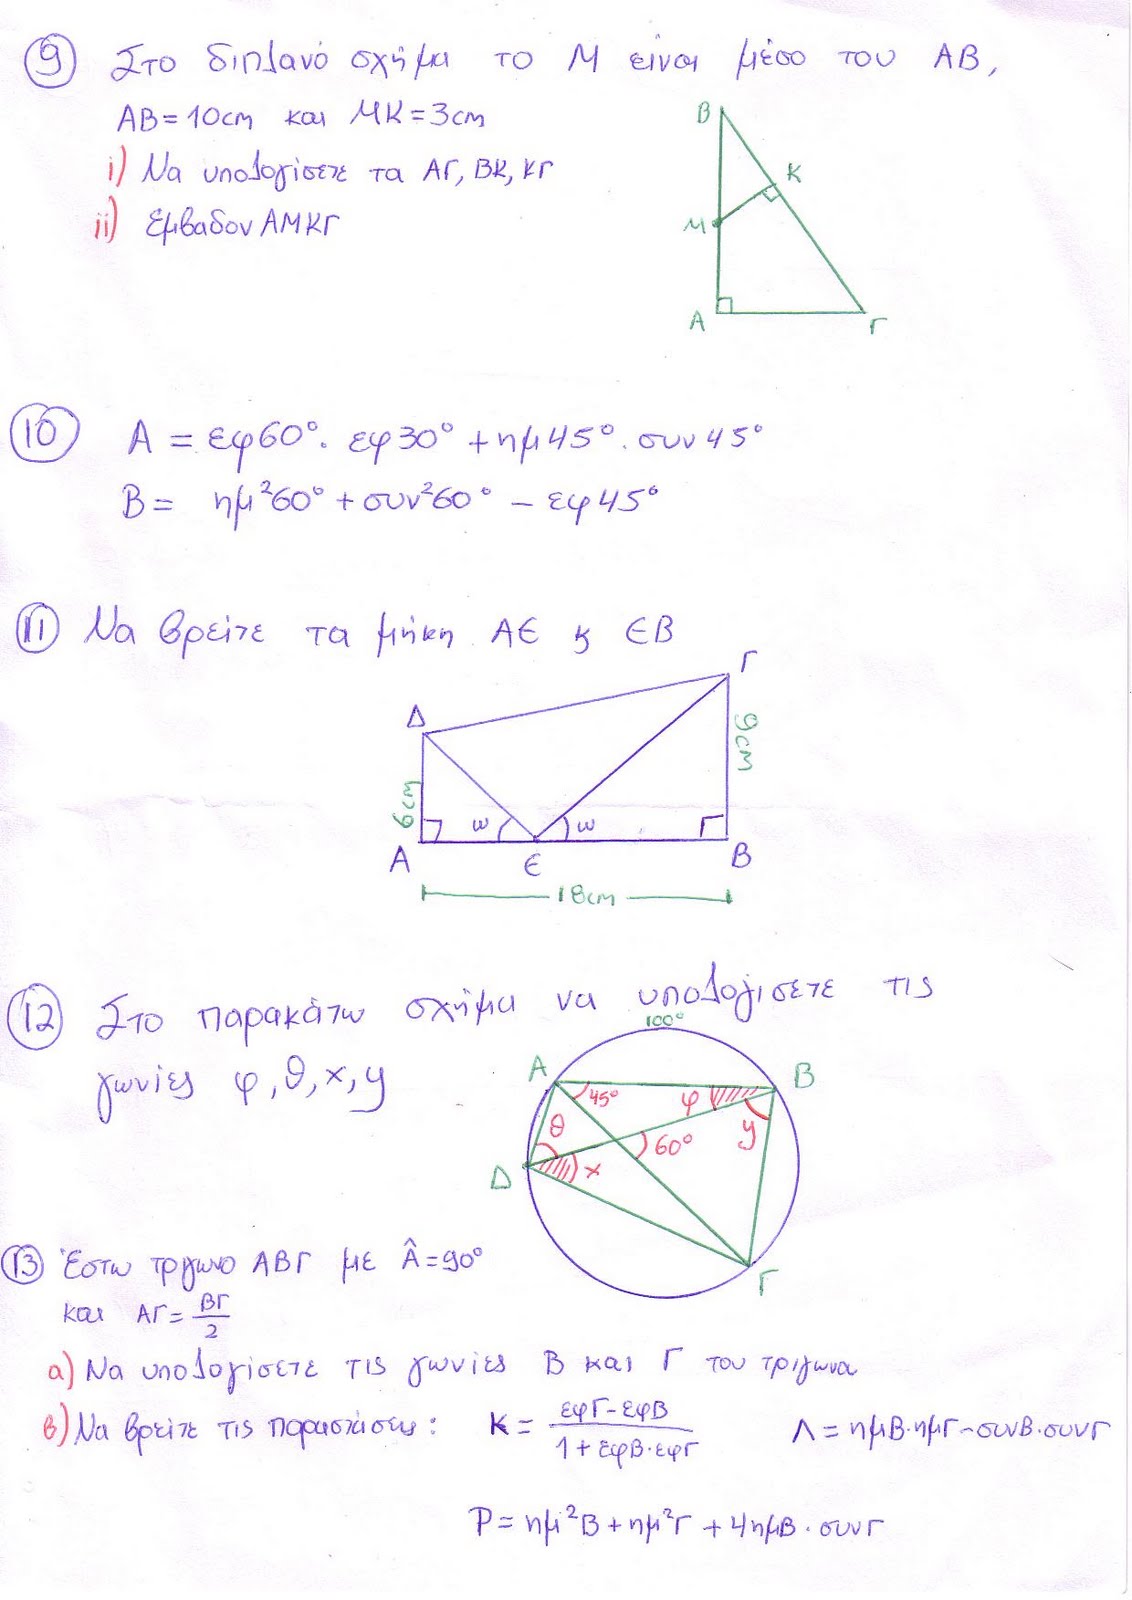 9 Στο διπλανό σχήμα το Μ είναι μέσο του ΑΒ,
ΑΒ = 10cm και ΜΚ = 3cm
i) Να υπολογίσετε τα ΑΓ, ΒΚ, ΚΓ
ii) Εμβαδον ΑΜΚΓ
Β
Κ
Μ
Α
Γ
10 Α = εφ60°. εφ30° + ημ45°. συν45°
Β = ημ²60° + συν²60° - εφ45°
11 Να βρείτε τα μήκη ΑΕ ϗ ΕΒ
Γ
Δ
9cm
6cm
ω
ω
Α
Ε
Β
18cm
12 Στο παρακάτω σχήμα να υπολογισετε τις
γωνίες φ, θ, x, y
100°
Α
Β
45°
φ
θ
y
60°
Δ
x
Γ
13 Έστω τργωνο ΑΒΓ με Â = 90°
και ΑΓ = ΒΓ/2
α) Να υπολογίσετε τις γωνίες Β και Γ του τριγωνα
β) Να βρείτε τις παραστάσεις: Κ = εφΓ - εφΒ / 1 + εφΒ·εφΓ Λ = ημΒ·ημΓ - συνΒ·συνΓ
Ρ = ημ²Β + ημ²Γ + 4ημΒ · συνΓ